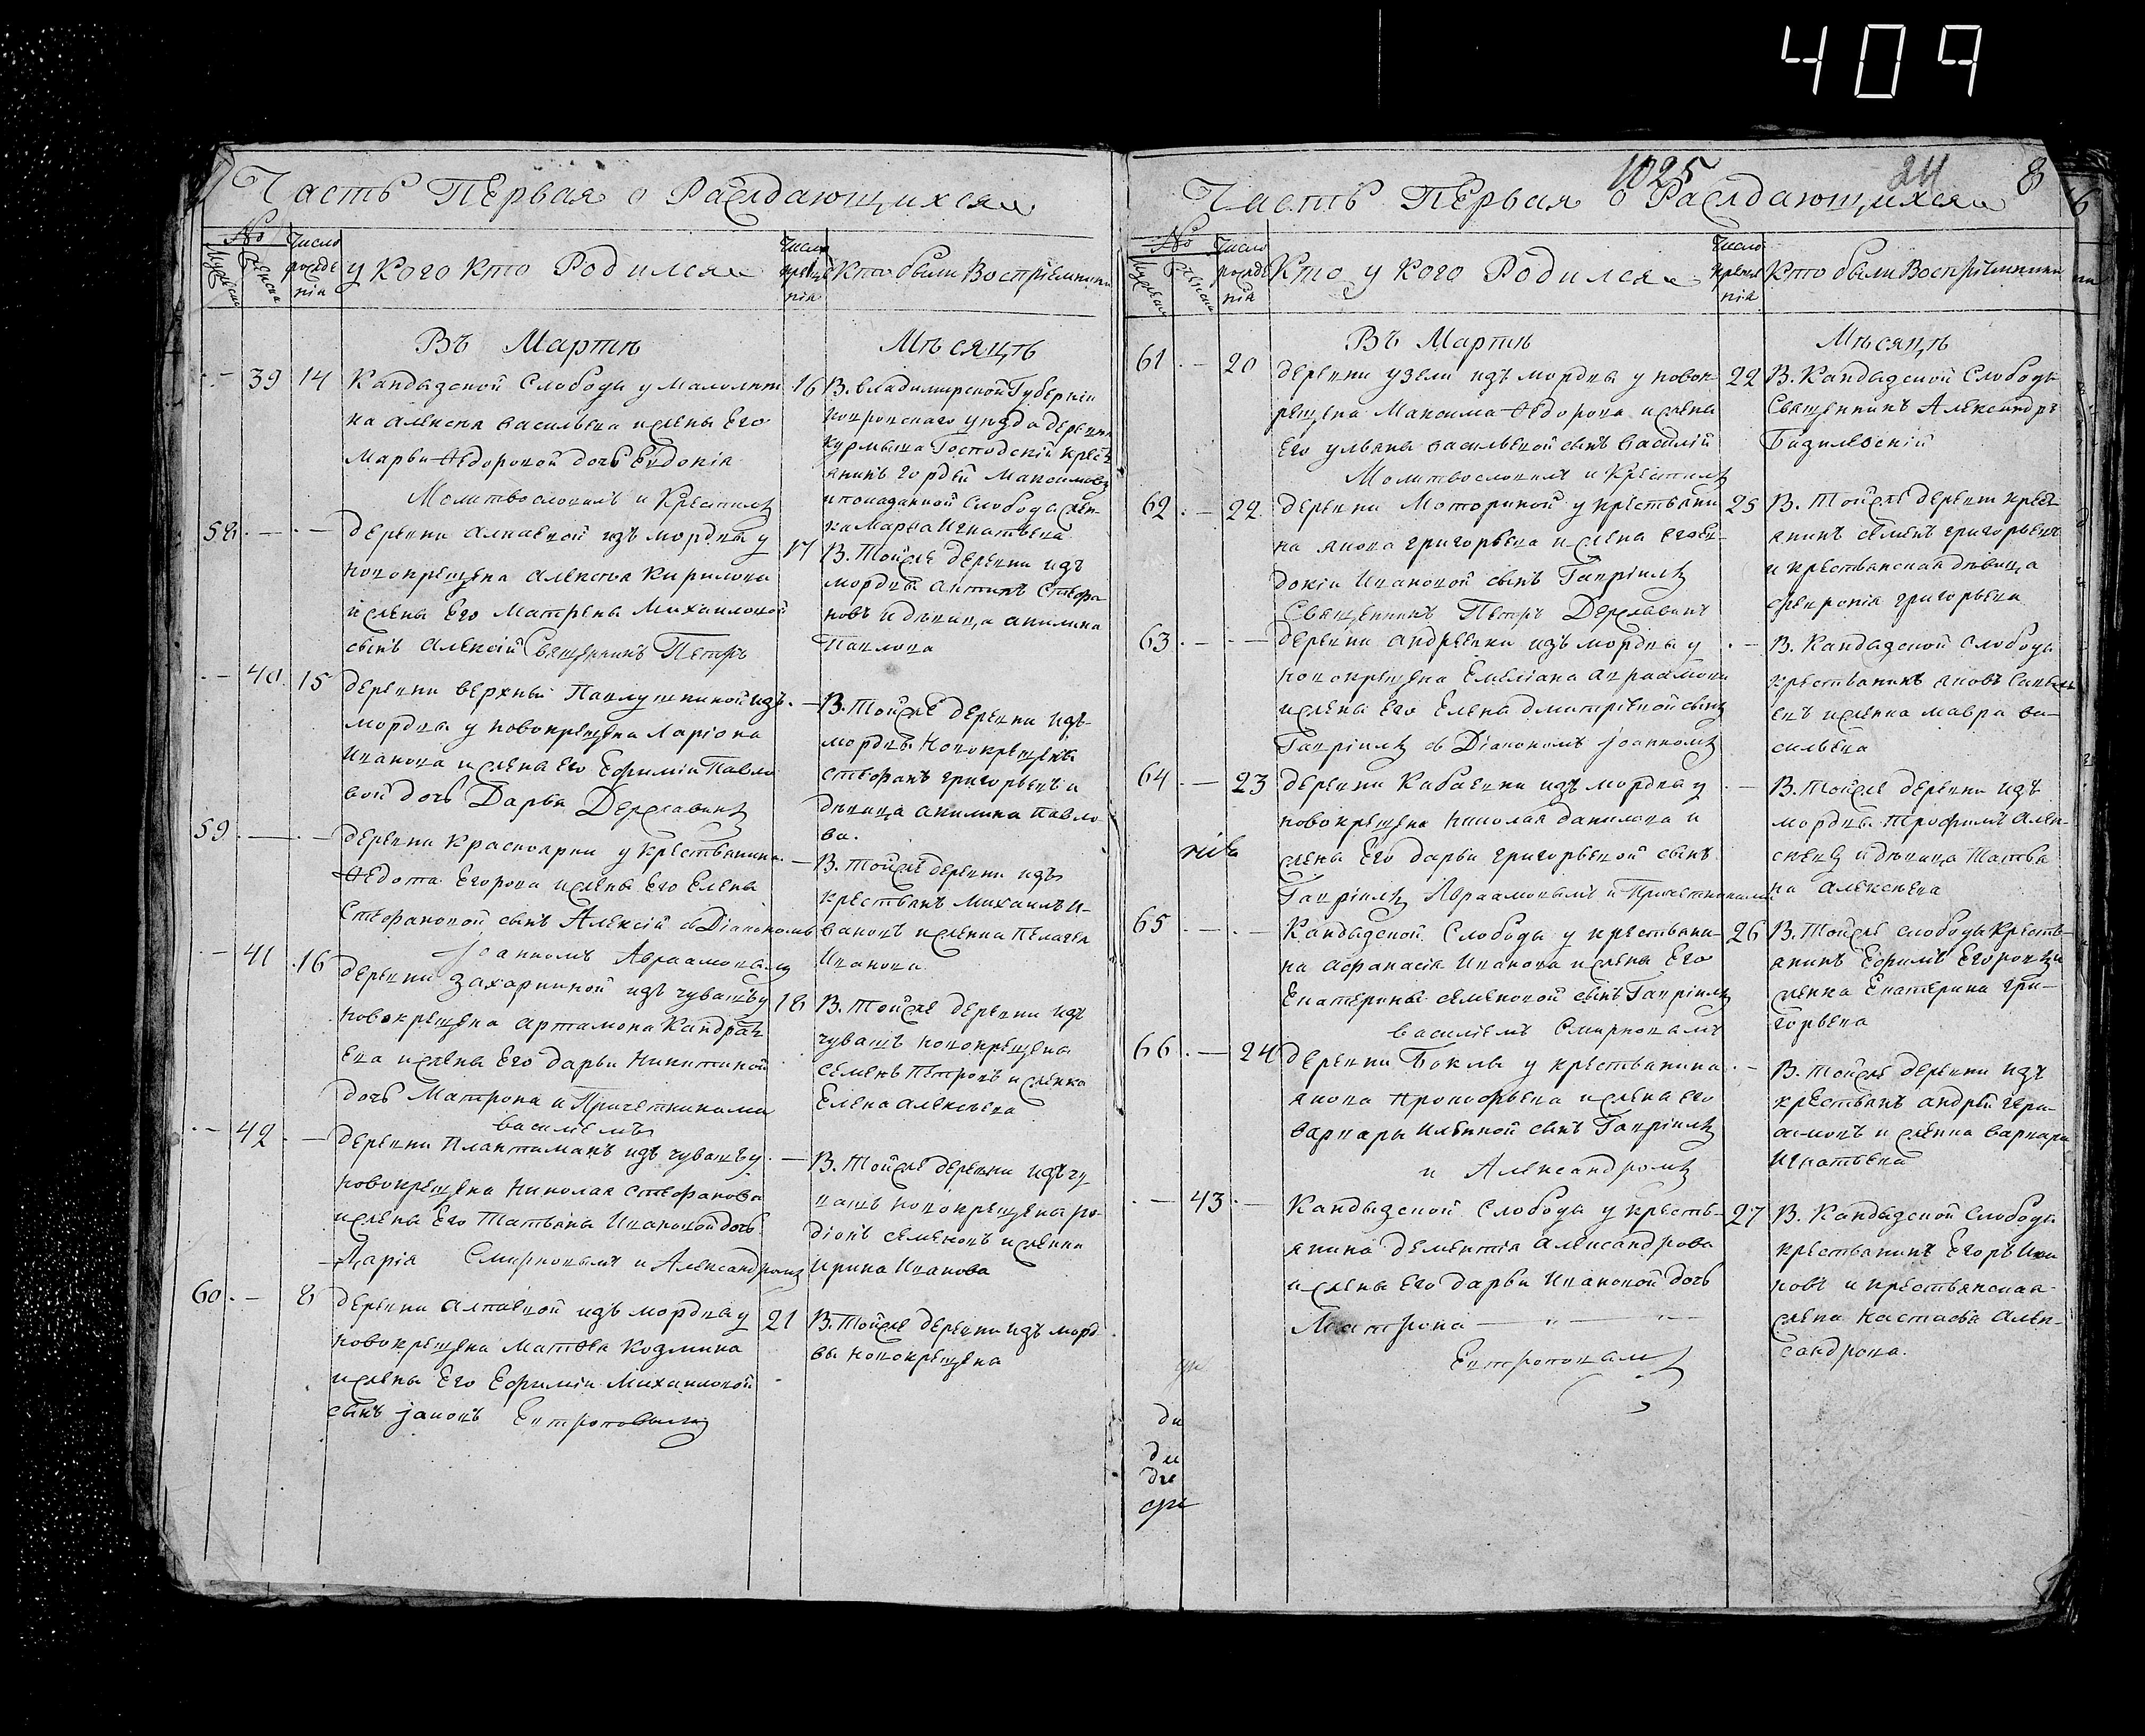 409
Часть Первая о Раждающихся
№
Число рожде нія
у кого кто Родился
Число креще нія
Кто были Воспріемники
Въ Мартѣ
Мѣсяцѣ
39 14 Кандызской Слободы у малолет
на алексѣя васильева и жены Его
Марьи Ѳедоровой дочь Евдокія
Молитвословилъ и Крестилъ
16 В. владимирской Губерніи
уѣзда деревни
Господскій крест
янинъ гордей Максимовъ
Слободы жен
ка Марья Игнатьева
58 — — деревни алпаевой изъ мордвы у
новокрещена алексѣя Кирилова
и жены Его Матрены Михаиловой
сынъ Алексій Священникъ Петръ
17 В. Тойже деревни изъ
мордвы антипъ Стефа
новъ и дѣвица акилина
Павлова
40 15 деревни верхный Павлушкиной изъ
мордвы у новокрещена Ларіона
Иванова и жены Его Ефиміи Павло
вой дочь Дарья Державинъ
— В. Тойже деревни изъ
мордвы новокрещенъ
стефанъ григорьевъ и
дѣвица акилина павло
ва.
59 — — деревни Красноярки у крестьянина
Ѳедота Егорова и жены Его Елены
Стефановой сынъ Алексій съ Діакономъ
Іоанномъ Авраамовымъ
— В. Тойже деревни изъ
крестьянъ михаилъ и-
вановъ и женка пелагея
Иванова
41 16 деревни Захаркиной изъ чувашъ у
новокрещена артамона Кандрать
ева и жены Его дарьи Никитиной
дочь Матрона и Причетниками
василіемъ
18 В. Тойже деревни изъ
чувашъ новокрещены
семенъ Петровъ и женка
Елена алексѣева
42 — деревни Плактиманъ изъ чувашъ у
новокрещена Николая стефанова
и жены Его Татьяны Ивановой дочь
Дарія Смирновымъ и Александромъ
— В. Тойже деревни изъ чу
вашъ новокрещены ро
діонъ семеновъ и женка
Ирина Иванова
60 — 8 деревни алпаевой изъ мордвы у
новокрещена Матѳея Козмина
и жены Его Ефиміи Михаиловой
сынъ іаковъ Евтроповымъ
21 В. Тойже деревни изъ морд
вы новокрещена
1025 24 8
Часть Первая о Раждающихся
№
Число рожде нія
Кто у кого Родился
Число креще нія
Кто были Воспріемники
Въ Мартѣ
Мѣсяцѣ
61 — 20 деревни узели изъ мордвы у новок
рещена Максима Ѳедорова и жены
Его ульяны васильевой сынъ василій
Молитвословилъ и Крестилъ
22 В. Кандызской Слободы
Священникъ Александръ
Базилевскій
62 — 22 деревни Моториной у крестьяни
на якова григорьева и жены его ев-
докіи Ивановой сынъ Гавріилъ
Священникъ Петръ Державинъ
25 В. Тойже деревни крест
янинъ семенъ григорьевъ
и крестьянская дѣвица
февронія григорьева
63 — — деревни андреевки изъ мордвы у
новокрещена Емеліана авраамова
и жены Его Елены дмитріевой сынъ
Гавріилъ съ Діакономъ Іоанномъ
— В. Кандызской Слободы
крестьянинъ яковъ
евъ и женка мавра ва-
сильева
64 — 23 деревни Кабаевки изъ мордвы у
новокрещена николая данилова и
жены Его дарьи григорьевой сынъ
Гавріилъ Авраамовымъ и Причетниками
— В. Тойже деревни изъ
мордвы трофимъ алек-
сѣевъ и дѣвица Татья
на алексѣева
65 — — Кандызской Слободы у крестьяни-
на афанасія Иванова и жены Его
Екатерины семеновой сынъ Гавріилъ
василіемъ Смирновымъ
26 В. Тойже слободы кресть-
янинъ Ефимъ Егоровъ и
женка Екатерина гри-
горьева
66 — 24 деревни Боклы у крестьянина
якова прокофьева и жены его
варвары Ильиной сынъ Гавріилъ
и Александромъ
— В. Тойже деревни изъ
крестьянъ андрей гера-
симовъ и женка варвара
Игнатьева
43 — Кандызской слободы у кресть-
янина дементія александрова
и жены Его дарьи Ивановой дочь
Матрона — „ — „ —
Евтроповымъ
27 В. Кандызской Слободы
крестьянинъ Егоръ Ива
новъ и крестьянская
женка настасья алек-
сандрова.